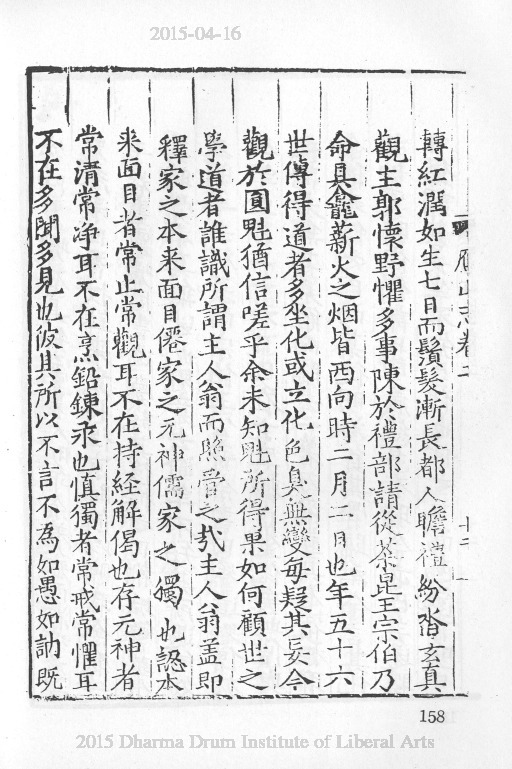 2015-04-16
轉紅潤如生七日而鬚髮漸長都人瞻禮紛沓玄真
觀主郭懷野懼多事陳於禮部請從荼毘王宗伯乃
命具龕薪火之烟皆西向時二月二日也年五十六
世傳得道者多坐化或立化色臭無變每疑其妄今
觀於圓魁猶信嗟乎余未知魁所得果如何顧世之
學道者誰識所謂主人翁而照管之㢤主人翁盖即
釋家之本来面目僊家之元神儒家之獨也認本
来面目者常止常觀耳不在持経解偈也存元神者
常清常净耳不在烹鉛鍊汞也慎獨者常戒常懼耳
不在多聞多見也彼其所以不言不為如愚如訥既
158
2015 Dharma Drum Institute of Liberal Arts